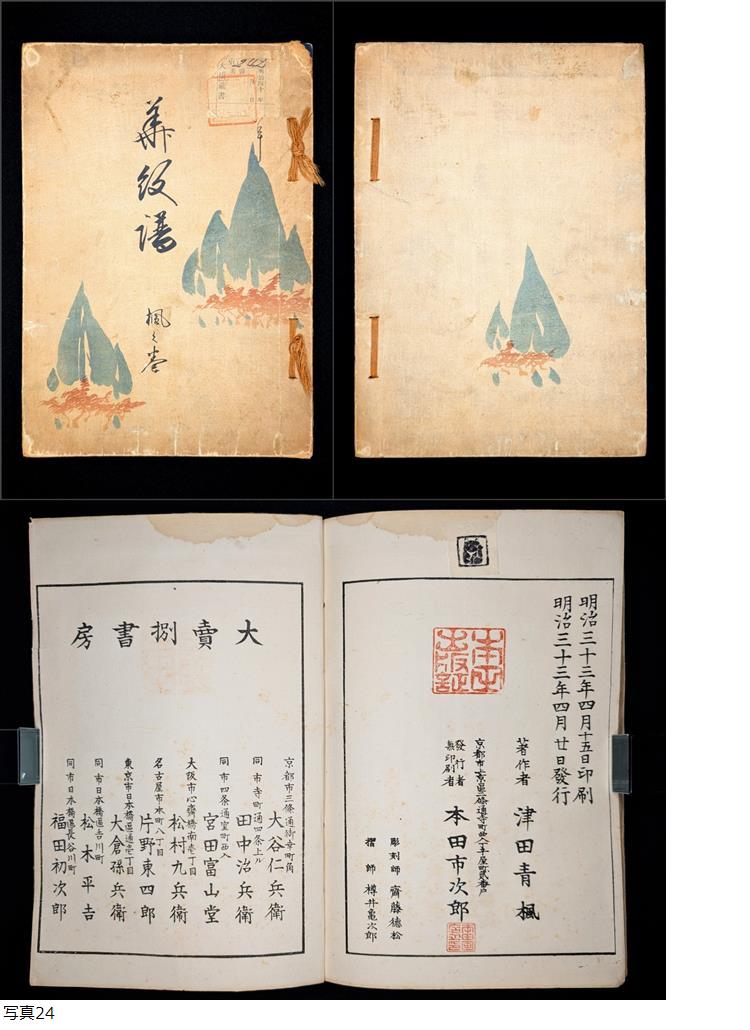 華紋譜
楓之巻
明治三十三年四月十五日印刷
明治三十三年四月廿日發行
著作者 津田青楓
發行者
兼印刷者
本田市次郎
彫刻師 齊藤德松
摺師 樽井亀次郎
大賣捌書房
京都市三條通御幸町角
大谷仁兵衛
同市寺町通四條上ル
田中治兵衛
同市四条通室町西入
宮田富山堂
大阪市心齋橋南壱丁目
松村九兵衛
名古屋市本町八丁目
片野東四郎
東京市日本橋區通壱丁目
大倉孫兵衛
同市日本橋區吉川町
松木平吉
同市日本橋區長谷川町
福田初次郎
写真24